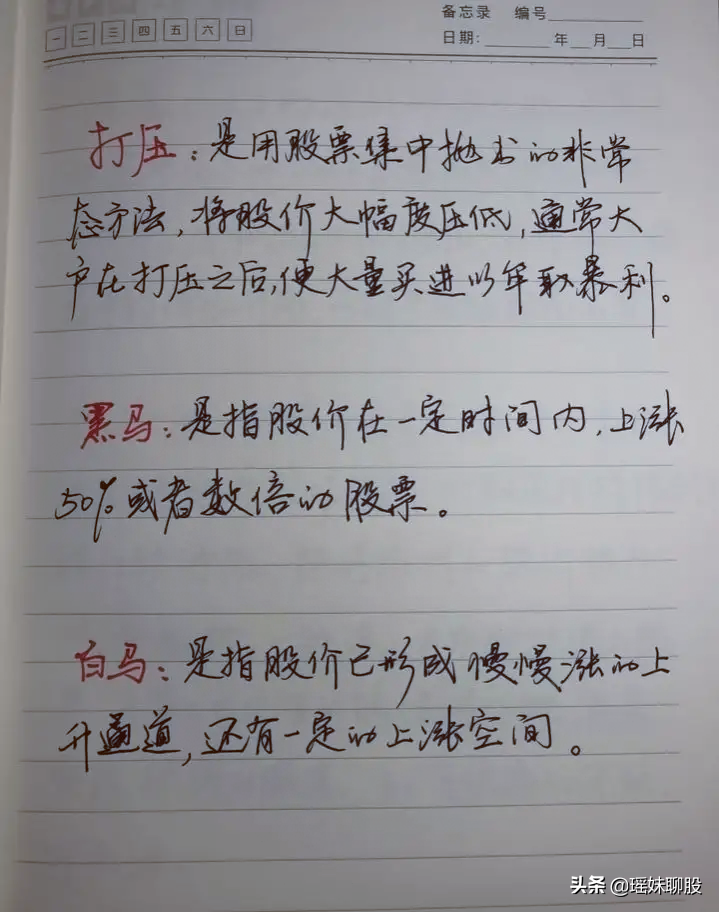 备忘录 编号
一 二 三 四 五 六 日
日期: 年 月 日
打压：是用股票集中抛出的非常
态方法，将股价大幅度压低，通常大
户在打压之后，便大量买进以牟取暴利。
黑马：是指股价在一定时间内，上涨
50%或者数倍的股票。
白马：是指股价已形成慢慢涨的上
升通道，还有一定的上涨空间。
头条 @瑶妹聊股